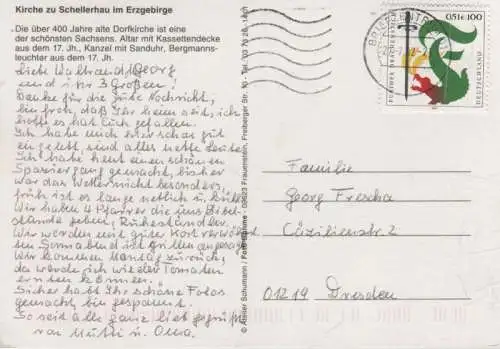 Kirche zu Schellerhau im Erzgebirge
Die über 400 Jahre alte Dorfkirche ist eine
der schönsten Sachsens. Altar mit Kassettendecke
aus dem 17. Jh., Kanzel mit Sanduhr, Bergmanns-
leuchter aus dem 17. Jh.
Liebe Waltraud, Georg
und ihr 3 Großen!
Danke für die gute Nachricht,
bin froh, daß Ihr heim seid, ich
hoffe es hat Euch gefallen.
Ich habe mich hier schon gut
eingelebt sind alles nette Leute
Ich habe heut einen schönen
Spaziergang gemacht, bisher
war das Wetter nicht besonders,
früh ist es lange neblich u.
Wir haben 4 Pfarrer die uns Bibel-
stunde geben, Ruheständler.
Wir werden mit guter Kost verwöhnt
Sonnabend ist Grillen angesagt
Wir kommen Montag zurück,
da werde ich wieder Tomaten
ernten können.
Sicher habt Ihr schöne Fotos
gemacht, bin gespannt.
So seid alle ganz lieb gegrüßt
von Mutti u. Oma.
© Atelier Schumann / Foto 09623 Frauenstein, Freiberger Str. 10
BRIEFZENTRUM
0,51€ 100
DEUTSCHLAND
Familie
Georg Frescha
Cäzilienstr. 2
01219 Dresden